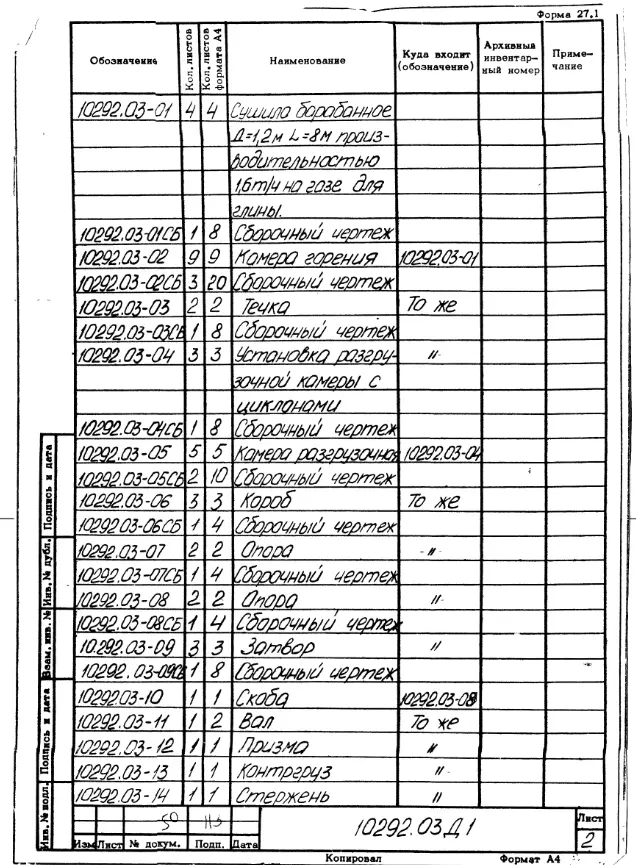 Форма 27.1
Обозначение Кол. листов Кол. листов формата А4 Наименование Куда входит (обозначение) Архивный инвентарный номер Примечание
10292.03-01 4 4 Сушило барабанное
Д=1,2м L=8м произ-
водительностью
1,6т/ч на газе для
глины.
10292.03-01СБ 1 8 Сборочный чертеж
10292.03-02 9 9 Камера горения 10292.03-01
10292.03-02СБ 3 20 Сборочный чертеж
10292.03-03 2 2 Течка То же
10292.03-03СБ 1 8 Сборочный чертеж
10292.03-04 3 3 Установка разгру- "
зочной камеры с
циклонами
10292.03-04СБ 1 8 Сборочный чертеж
10292.03-05 5 5 Камера разгрузочная 10292.03-04
10292.03-05СБ 2 10 Сборочный чертеж
10292.03-06 3 3 Короб То же
10292.03-06СБ 1 4 Сборочный чертеж
10292.03-07 2 2 Опора - " -
10292.03-07СБ 1 4 Сборочный чертеж
10292.03-08 2 2 Опора "
10292.03-08СБ 1 4 Сборочный чертеж
10292.03-09 3 3 Затвор "
10292.03-09СБ 1 8 Сборочный чертеж
10292.03-10 1 1 Скоба
10292.03-11 1 2 Вал То же
10292.03-12 1 1 Призма "
10292.03-13 1 1 Контргруз "
10292.03-14 1 1 Стержень "
Подпись и дата
Инв. № дубл.
Взам. инв. №
Подпись и дата
Инв. № подл.
Изм Лист № докум. Подп. Дата
10292.03Д1
Лист
2
Копировал Формат А4